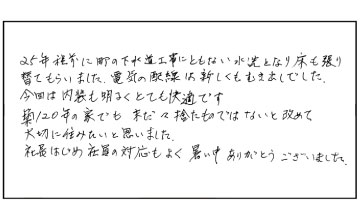 25年程前に町の下水道工事にともない水洗となり床も張り
替てもらいました。電気の配線は新しくもむき出しでした。
今回は内装も明るくとても快適です
築120年の家でも まだまだ捨たものではないと改めて
大切に住みたいと思いました。
社長はじめ社員の対応もよく 暑い中 ありがとうございました。